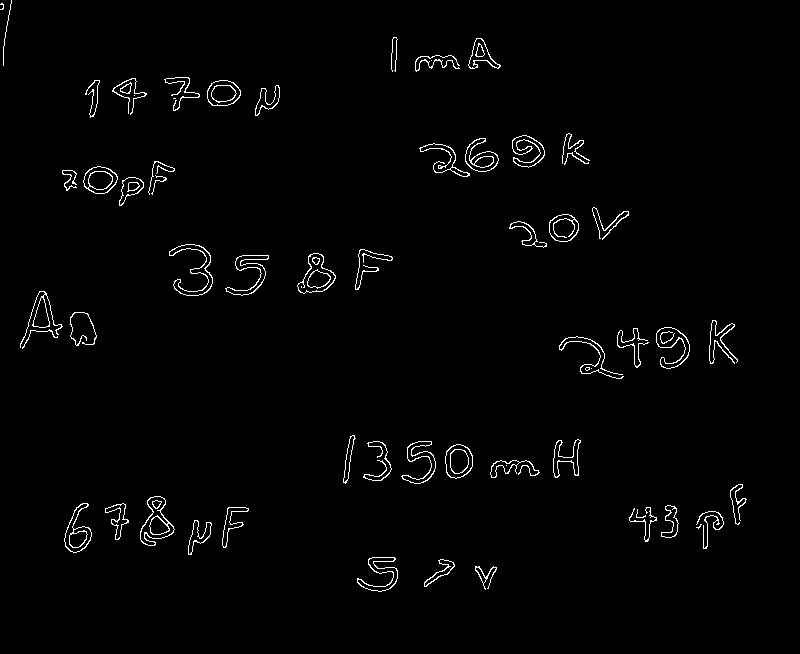 1 mA
1470 μ
269 K
70pF
20V
358F
249K
1350 mH
678 μF
43 pF
57 v